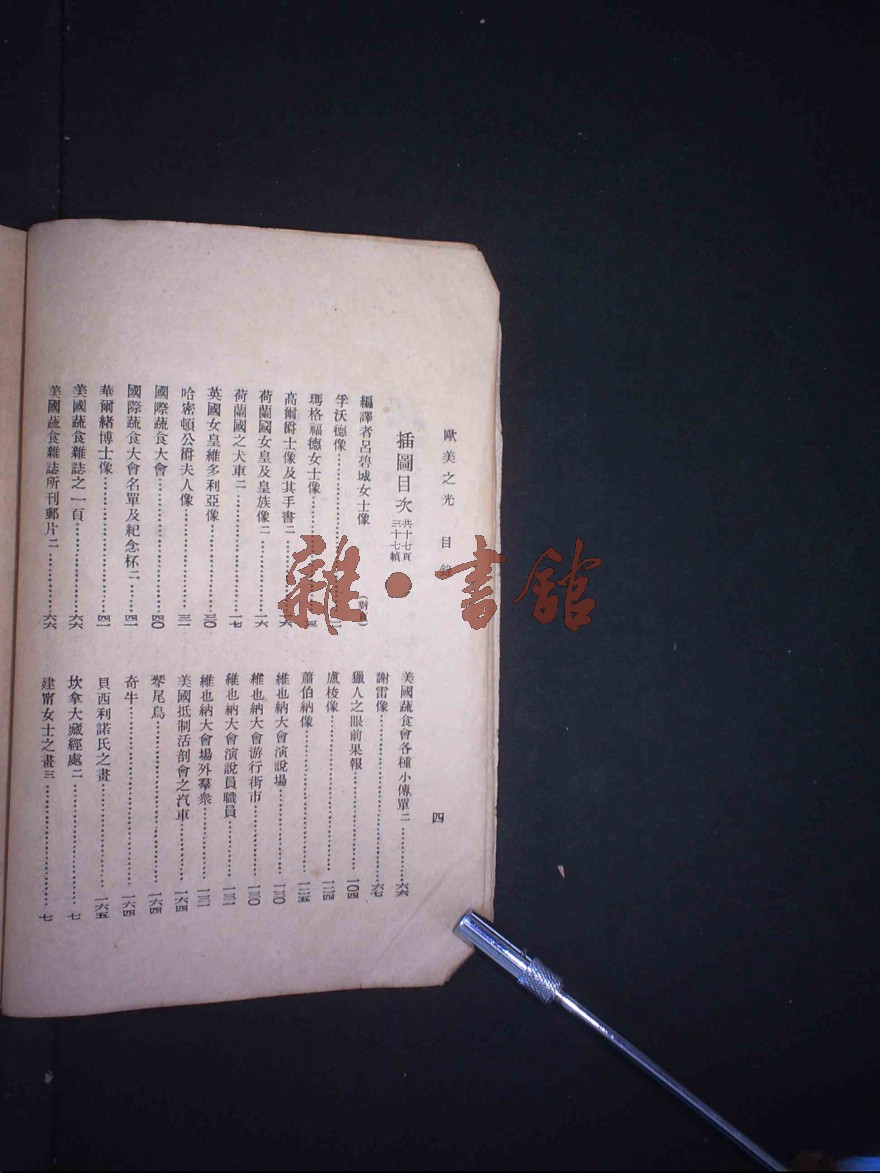 歐美之光 目
四
插圖目次 共十七頁 三十七幀
編譯者呂碧城女士像
孚沃德像
瑪格福德女士像
高爾爵士像及其手書二
荷蘭國女皇及皇族像二 一六
荷蘭國之犬車二 一七
英國女皇維多利亞像 三〇
哈密頓公爵夫人像 三一
國際蔬食大會 四〇
國際蔬食大會名單及紀念杯二 四一
華爾緒博士像 四一
美國蔬食雜誌之一頁 六六
美國蔬食雜誌所刊郵片二 六六
美國蔬食會各種小傳單二 六六
謝雷像 六七
獵人之眼前果報 一〇四
盧梭像 一二四
蕭伯納像 一二五
維也納大會演說場 一三〇
維也納大會游行街市 一三〇
維也納大會演說員職員 一三一
維也納大會場外羣衆 一三一
美國抵制活剖會之汽車 一六四
琴尾鳥 一六四
奇牛 一六四
貝西利諾氏之畫 一六五
坎拿大藏經處二 七
建甯女士之畫三 七
雜·書館